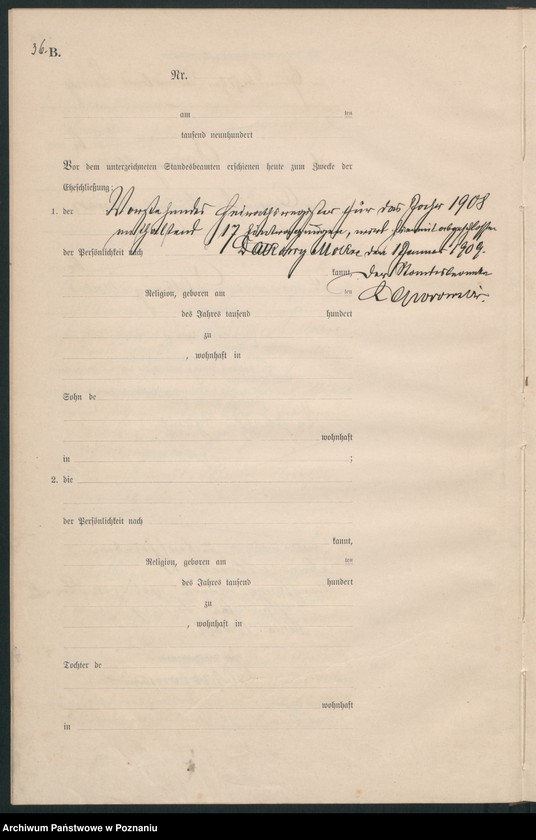 36. B.
Nr.
am ten
tausend neunhundert
Vor dem unterzeichneten Standesbeamten erschienen heute zum Zwecke der
Eheschließung:
1. der Vorstehendes Heiratsregister für das Jahr 1908
enthaltend 17 Eintragungen, wird hiermit abgeschlossen
der Persönlichkeit nach Dakowy Mokre den 1 Januar 1909.
kannt, Der Standesbeamte
Religion, geboren am ten
des Jahres tausend hundert
zu
, wohnhaft in
Sohn de
wohnhaft
in ;
2. die
der Persönlichkeit nach
kannt,
Religion, geboren am ten
des Jahres tausend hundert
zu
, wohnhaft in
Tochter de
wohnhaft
in
Archiwum Państwowe w Poznaniu